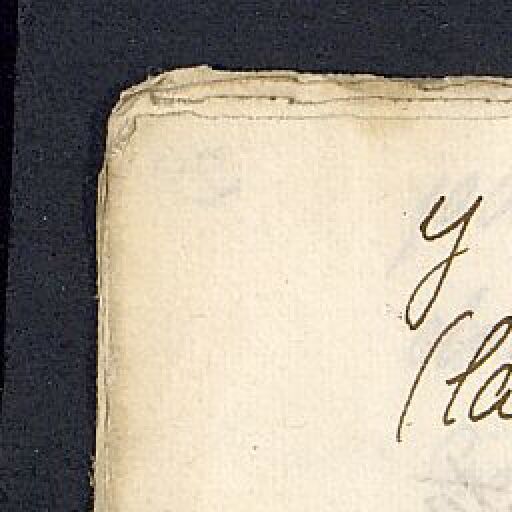 y
(la